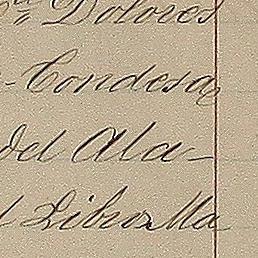 Dolores
Condesa
del Ala-
Libro Ma